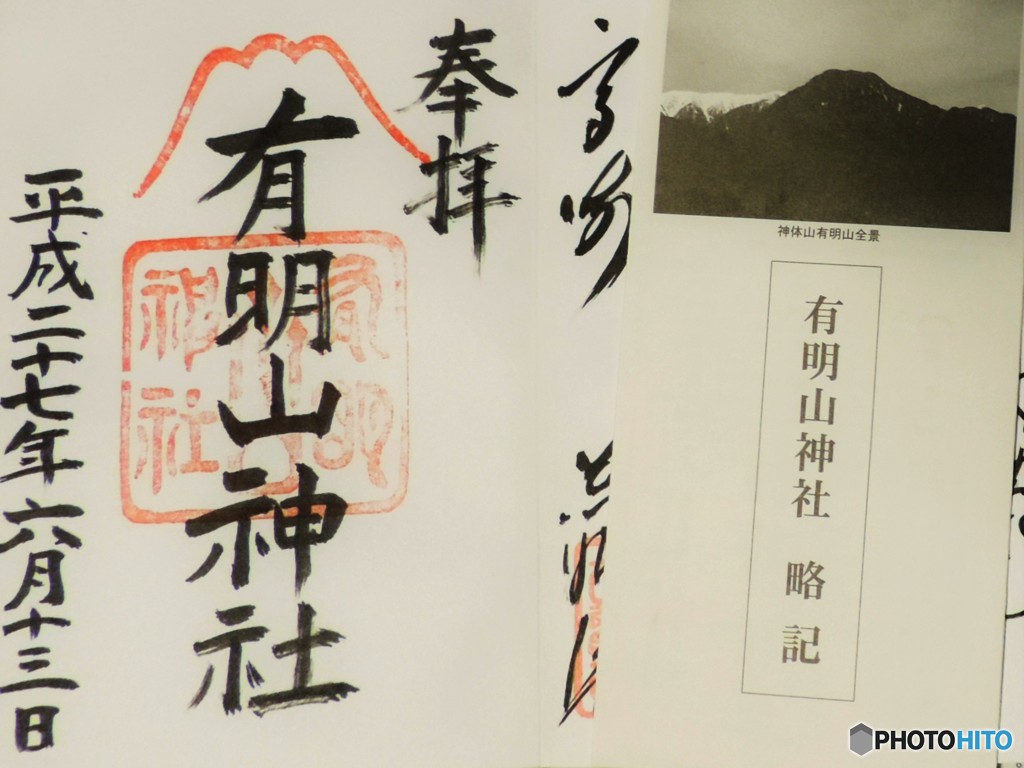 神体山有明山全景
有明山神社 略記
奉拝
有明山神社
平成二十七年六月十三日
神社
PHOTOHITO